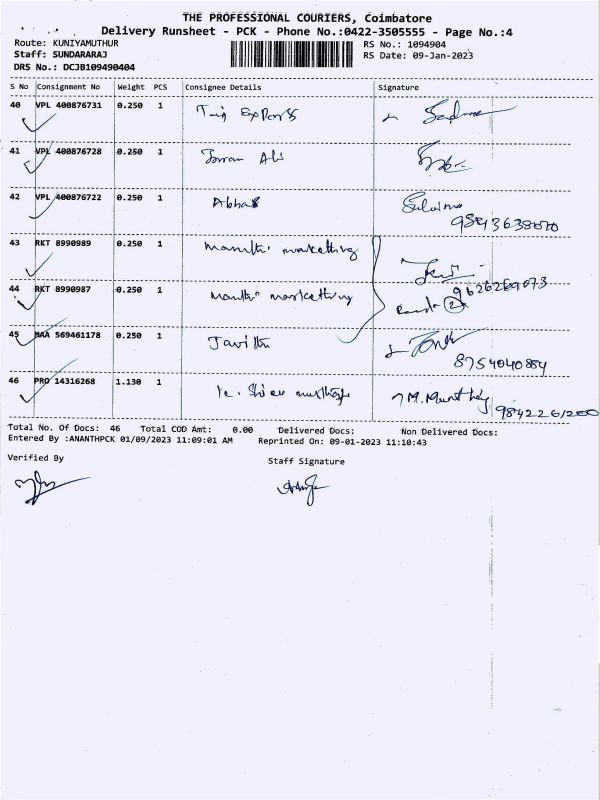 THE PROFESSIONAL COURIERS, Coimbatore
Delivery Runsheet - PCK - Phone No.:0422-3505555 - Page No.:4
Route: KUNIYAMUTHUR
RS No.: 1094904
Staff: SUNDARARAJ
RS Date: 09-Jan-2023
DRS No.: DCJB109490404
S No Consignment No Weight PCS Consignee Details Signature
40 VPL 400876731 0.250 1
41 VPL 400876728 0.250 1 Imran Ali
42 VPL 400876722 0.250 1 Abbas
9843638070
43 RKT 8990989 0.250 1
9626269073
44 RKT 8990987 0.250 1
45 MAA 569461178 0.250 1
8754040884
46 PRO 14316268 1.130 1
9842261200
Total No. Of Docs: 46 Total COD Amt: 0.00 Delivered Docs: Non Delivered Docs:
Entered By :ANANTHPCK 01/09/2023 11:09:01 AM Reprinted On: 09-01-2023 11:10:43
Verified By Staff Signature